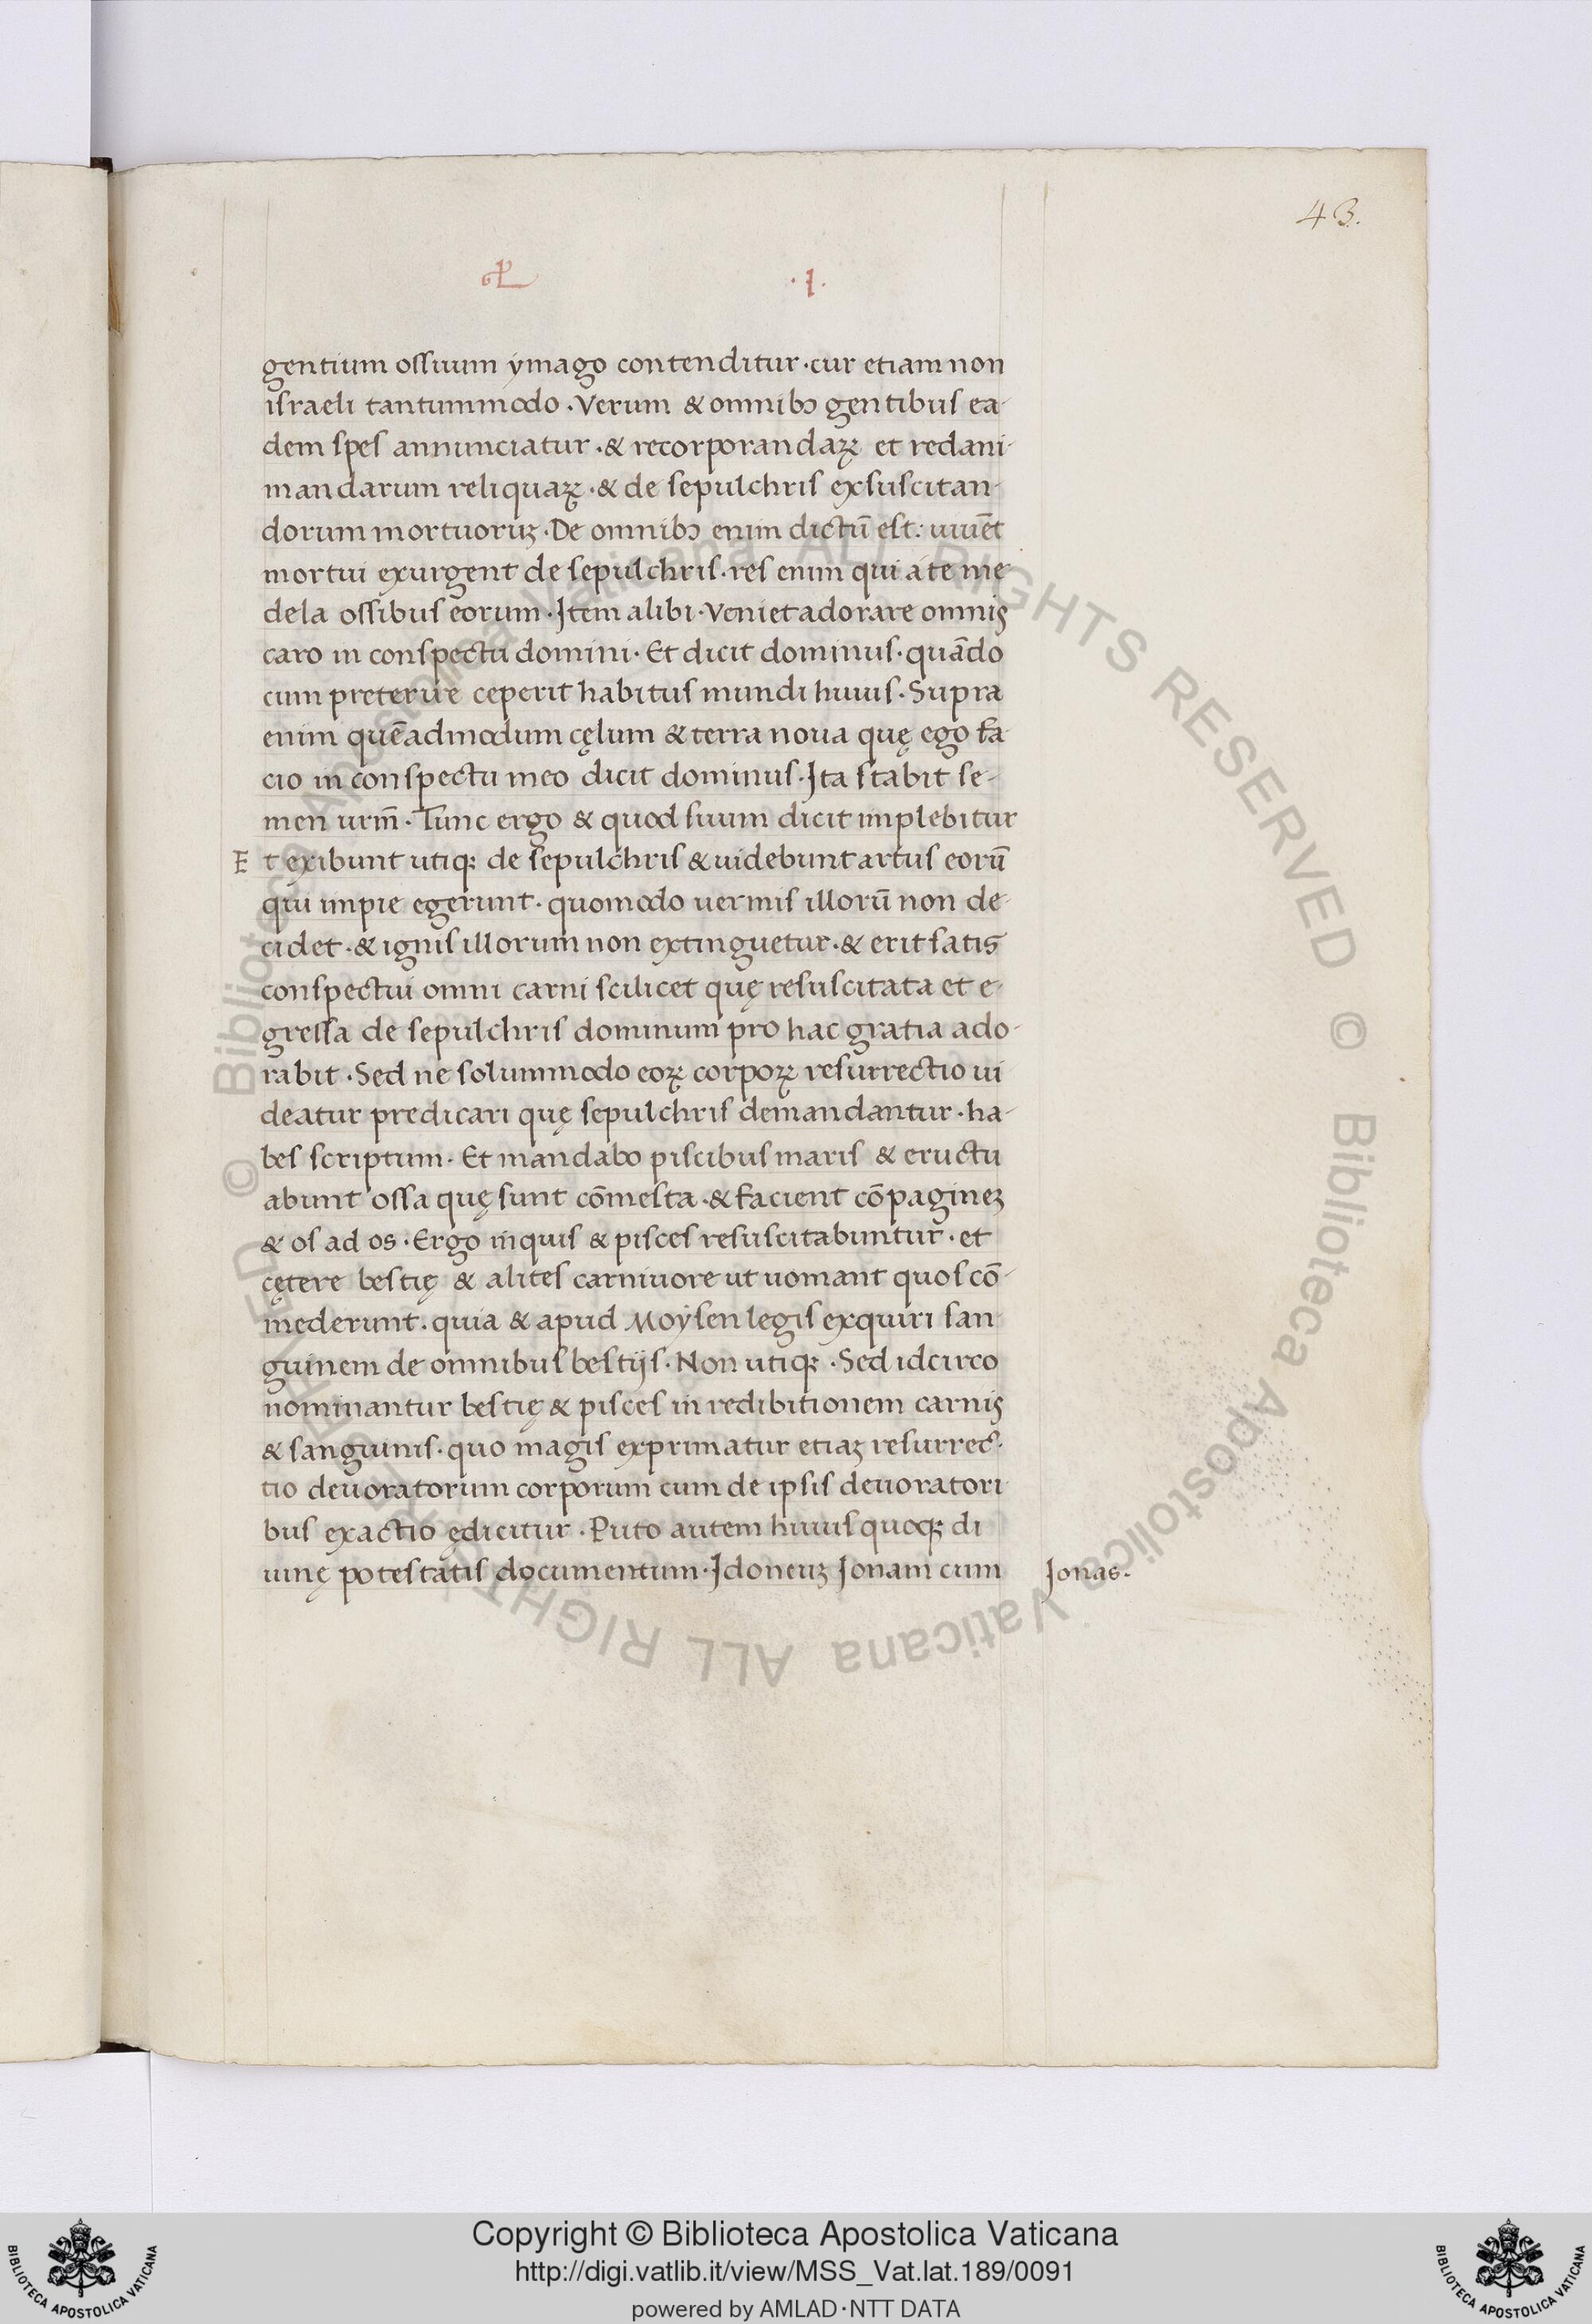 43.
·I·
gentium ossuum ymago contenditur·cur etiam non
israeli tantummodo·Verum & omnibꝫ gentibus ea-
dem spes annunciatur·& recorporandaꝝ et redani-
mandarum reliquaꝝ·& de sepulchris exsuscitan-
dorum mortuoruꝫ·De omnibꝫ enim dictū est: uiuēt
mortui exurgent de sepulchris·res enim qui á te me
dela ossibus eorum·Item alibi·Veniet adorare omnis
caro in conspectu domini·Et dicit dominus·quādo
cum preterire ceperit habitus mundi huius·Supra
enim quēadmodum cęlum & terra noua quę ego fa
cio in conspectu meo dicit dominus·Ita stabit se-
men urm̄·Tunc ergo & quod suum dicit implebitur
Et exibunt utiqꝫ de sepulchris & uidebunt artus eorū
qui impie egerunt·quomodo uermis illorū non de-
cidet·& ignis illorum non extinguetur·& erit satis
conspectui omni carni scilicet quę resuscitata et e-
gressa de sepulchris dominum pro hac gratia ado-
rabit·Sed ne solummodo eoꝝ corpoꝝ resurrectio ui
deatur predicari quę sepulchris demandantur·ha-
bes scriptum·Et mandabo piscibus maris & eructu
abunt ossa quę sunt cōmesta·& facient cōpagineꝫ
& os ad os·Ergo inquis & pisces resuscitabuntur·et
cętere bestię & alites carniuore ut uomant quos cō-
mederunt·quia & apud Moysen legis exquiri san
guinem de omnibus bestijs·Non utiqꝫ·Sed idcirco
nominantur bestię & pisces in redibitionem carnis
& sanguinis·quo magis exprimatur etiaꝫ resurrec-
tio deuoratorum corporum cum de ipsis deuoratori
bus exactio ędicitur·Puto autem huius quoqꝫ di
uinę potestatis documentum·Idoneuꝫ Jonam cum
Jonas.
© Biblioteca Apostolica Vaticana ALL RIGHTS RESERVED © Biblioteca Apostolica Vaticana ALL RIGHTS RESERVED
Copyright © Biblioteca Apostolica Vaticana
http://digi.vatlib.it/view/MSS_Vat.lat.189/0091
powered by AMLAD·NTT DATA
BIBLIOTECA APOSTOLICA VATICANA
BIBLIOTECA APOSTOLICA VATICANA